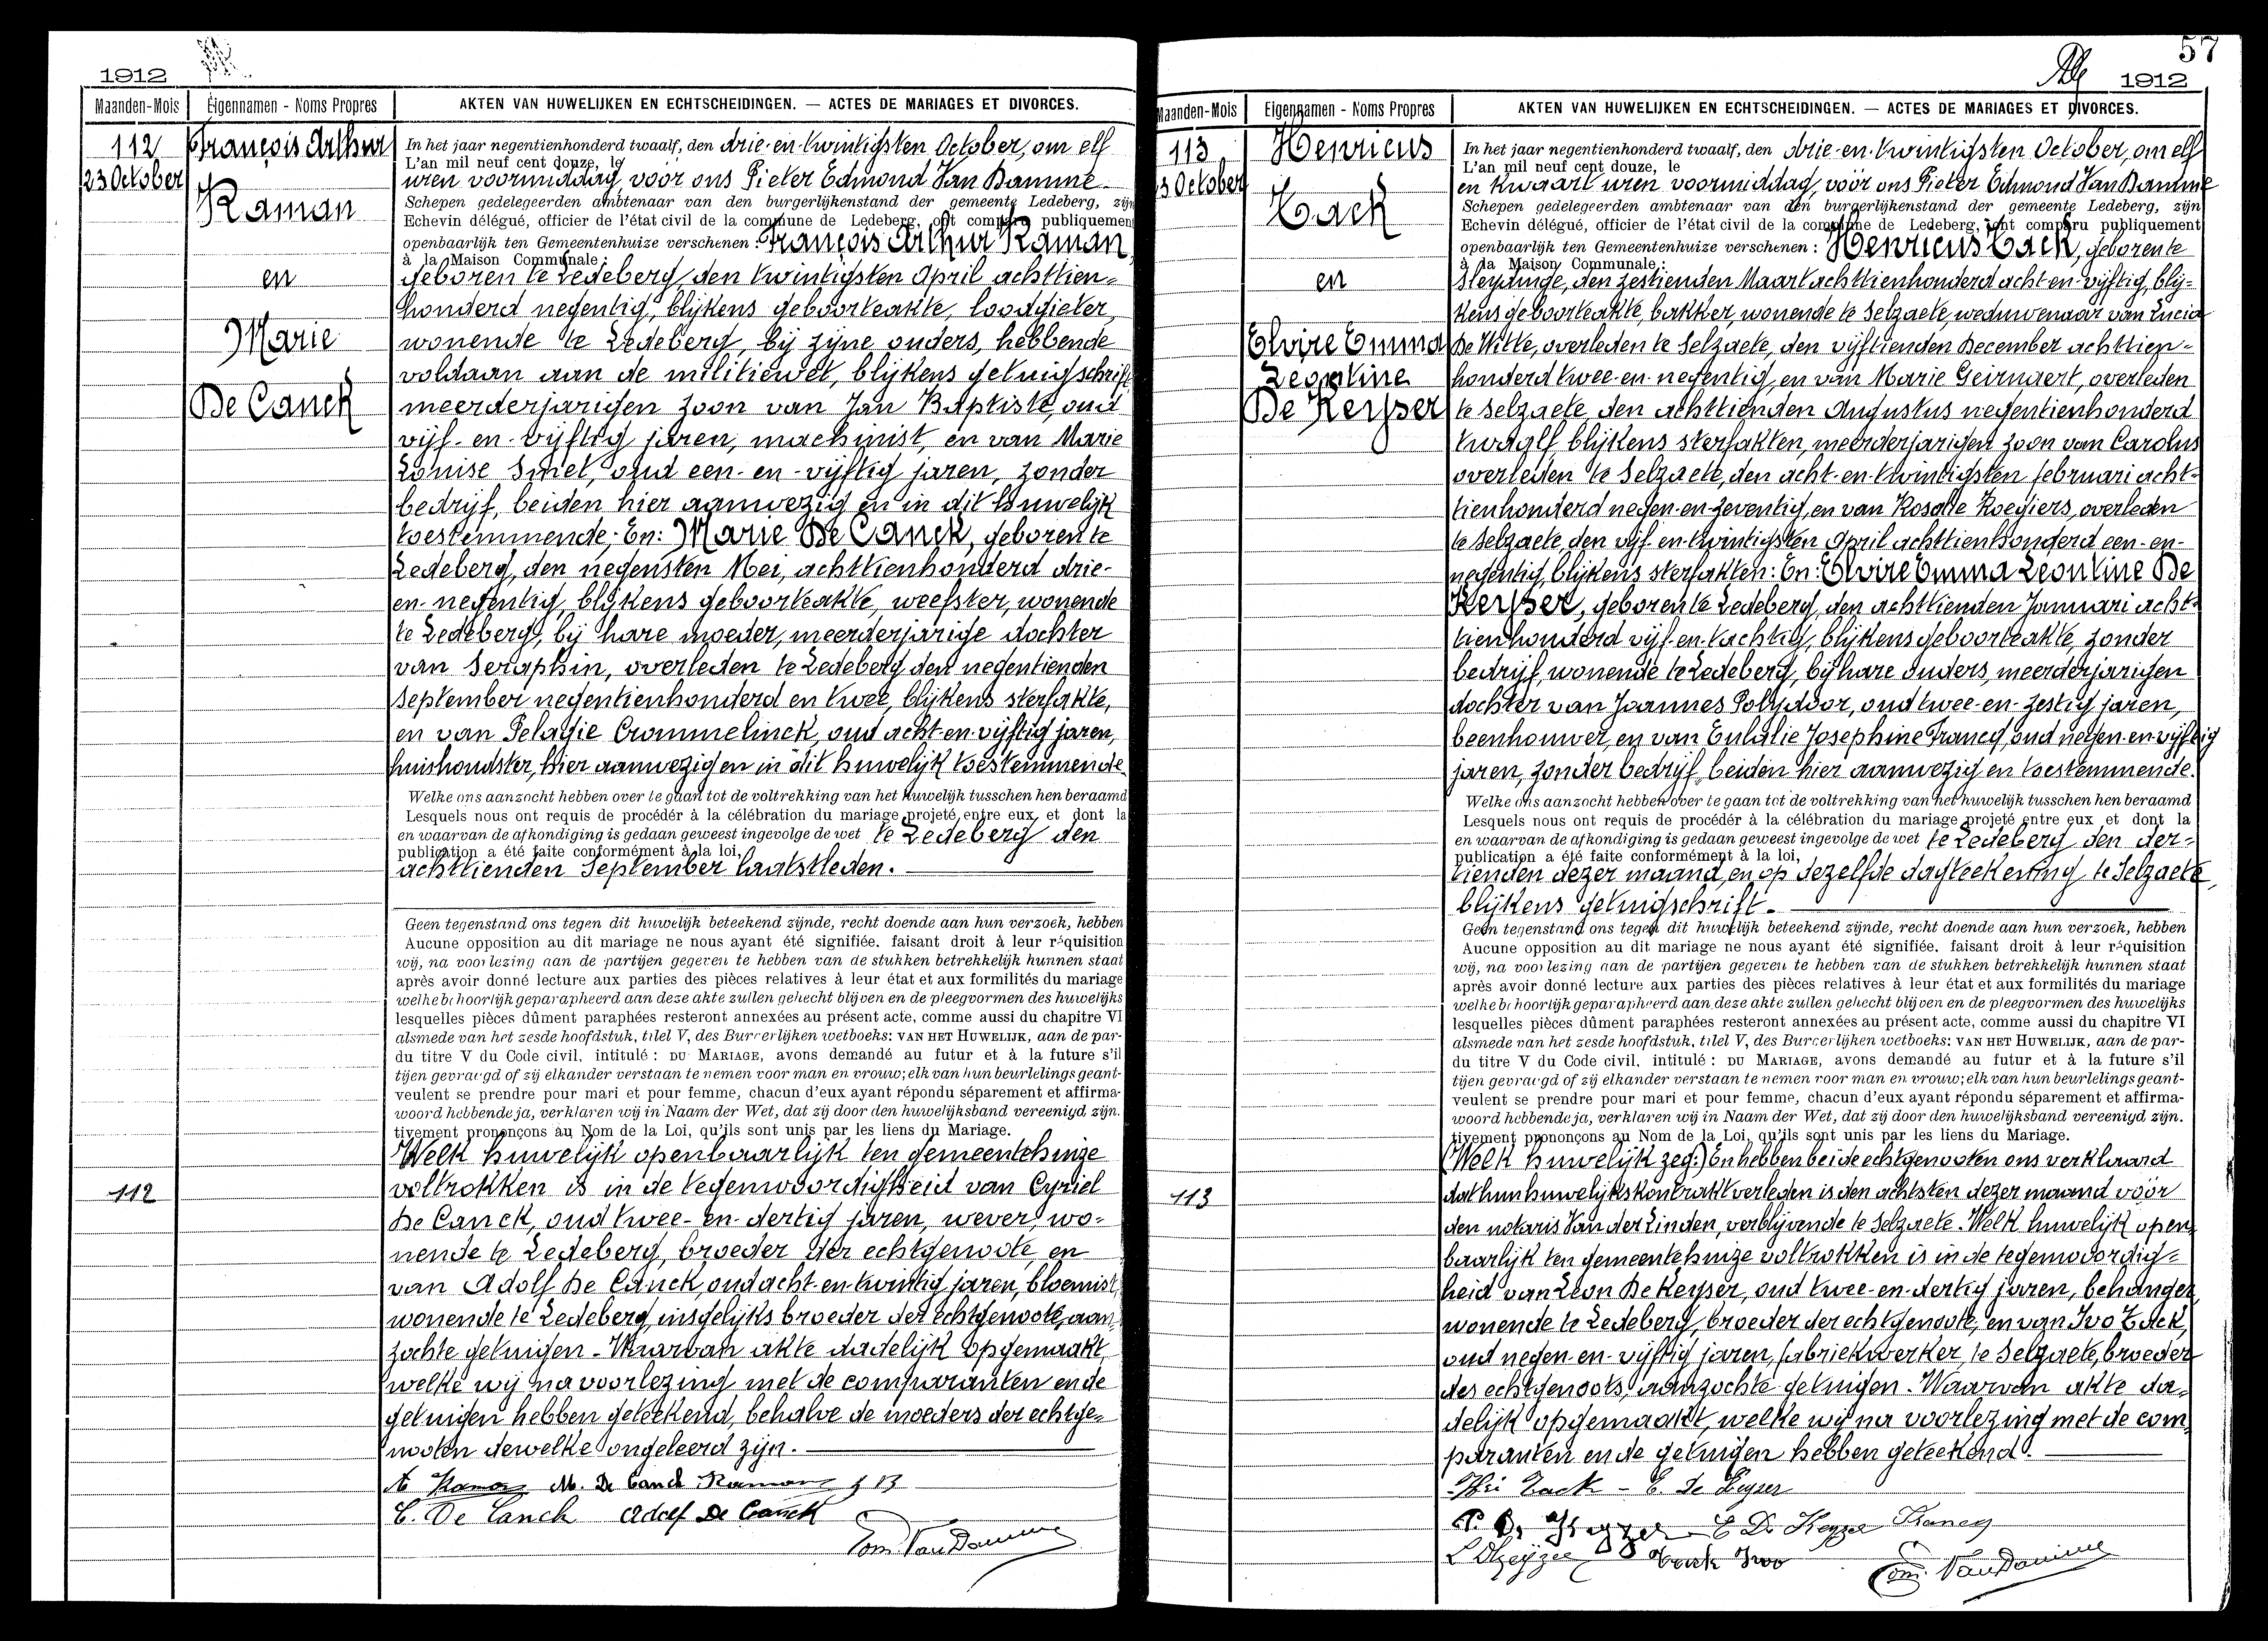 1912
Maanden-Mois
Eigennamen - Noms Propres
AKTEN VAN HUWELIJKEN EN ECHTSCHEIDINGEN. — ACTES DE MARIAGES ET DIVORCES.
112
23 October
François Arthur
Raman
en
Marie
De Canck
In het jaar negentienhonderd twaalf, den drie-en-twintigsten October, om elf
L'an mil neuf cent douze, le
uren voormiddag, voor ons Pieter Edmond Van Damme
Schepen gedelegeerden ambtenaar van den burgerlijkenstand der gemeente Ledeberg, zijn
Echevin délégué, officier de l'état civil de la commune de Ledeberg, ont comparu publiquement
openbaarlijk ten Gemeentenhuize verschenen : François Arthur Raman,
à la Maison Communale :
geboren te Ledeberg, den twintigsten April achttien-
honderd negentig, blijkens geboorteakte, loodgieter,
wonende te Ledeberg, bij zijne ouders, hebbende
voldaan aan de militiewet, blijkens getuigschrift
meerderjarigen zoon van Jan Baptiste, oud
vijf-en-vijftig jaren, machinist, en van Marie
Louise Smet, oud een-en-vijftig jaren, zonder
bedrijf, beiden hier aanwezig en in dit huwelijk
toestemmende; En: Marie De Canck, geboren te
Ledeberg, den negensten Mei, achttienhonderd drie-
en-negentig, blijkens geboorteakte, weefster, wonende
te Ledeberg, bij hare moeder, meerderjarige dochter
van Seraphin, overleden te Ledeberg den negentienden
September negentienhonderd en twee, blijkens sterfakte,
en van Pelagie Crommelinck, oud acht-en-vijftig jaren,
huishoudster, hier aanwezig en in dit huwelijk toestemmende
Welke ons aanzocht hebben over te gaan tot de voltrekking van het huwelijk tusschen hen beraamd
Lesquels nous ont requis de procédér à la célébration du mariage projeté entre eux et dont la
en waarvan de afkondiging is gedaan geweest ingevolge de wet te Ledeberg den
publication a été faite conformément à la loi,
achttienden September laatstleden.
Geen tegenstand ons tegen dit huwelijk beteekend zijnde, recht doende aan hun verzoek, hebben
Aucune opposition au dit mariage ne nous ayant été signifiée. faisant droit à leur réquisition
wij, na voorlezing aan de partijen gegeven te hebben van de stukken betrekkelijk hunnen staat
après avoir donné lecture aux parties des pièces relatives à leur état et aux formilités du mariage
welke behoorlijk geparapheerd aan deze akte zullen gehecht blijven en de pleegvormen des huwelijks
lesquelles pièces dûment paraphées resteront annexées au présent acte, comme aussi du chapitre VI
alsmede van het zesde hoofdstuk, titel V, des Burgerlijken wetboeks: VAN HET HUWELIJK, aan de par-
du titre V du Code civil, intitulé : DU MARIAGE, avons demandé au futur et à la future s'il
tijen gevraagd of zij elkander verstaan te nemen voor man en vrouw; elk van hun beurtelings geant-
veulent se prendre pour mari et pour femme, chacun d'eux ayant répondu séparement et affirma-
woord hebbende ja, verklaren wij in Naam der Wet, dat zij door den huwelijksband vereenigd zijn.
tivement prononçons au Nom de la Loi, qu'ils sont unis par les liens du Mariage.
Welk huwelijk openbaarlijk ten gemeentehuize
112
voltrokken is in de tegenwoordigheid van Cyriel
De Canck, oud twee-en-dertig jaren, wever, wo-
nende te Ledeberg, broeder der echtgenoote, en
van Adolf De Canck, oud acht-en-twintig jaren, bloemist,
wonende te Ledeberg, insgelijks broeder der echtgenoote, aan-
zochte getuigen. Waarvan akte dadelijk opgemaakt,
welke wij na voorlezing met de comparanten en de
getuigen hebben geteekend, behalve de moeders der echtge-
nooten dewelke ongeleerd zijn.
A Raman M. De Canck Raman J B
C. De Canck Adolf De Canck
Edm. Van Damme
57
1912
Maanden-Mois
Eigennamen - Noms Propres
AKTEN VAN HUWELIJKEN EN ECHTSCHEIDINGEN. — ACTES DE MARIAGES ET DIVORCES.
113
3 October
Henricus
Tack
en
Elvire Emma
Leontine
De Keyser
In het jaar negentienhonderd twaalf, den drie-en-twintigsten October, om elf
L'an mil neuf cent douze, le
en kwaart uren voormiddag, vóór ons Pieter Edmond Van Damme
Schepen gedelegeerden ambtenaar van den burgerlijkenstand der gemeente Ledeberg, zijn
Echevin délégué, officier de l'état civil de la commune de Ledeberg, ont comparu publiquement
openbaarlijk ten Gemeentenhuize verschenen : Henricus Tack, geboren te
à la Maison Communale :
Sleydinge, den zestienden Maart achttienhonderd acht-en-vijftig, blij-
kens geboorteakte, bakker, wonende te Selzaete, weduwenaar van Lucia
De Witte, overleden te Selzaete, den vijftienden December achttien-
honderd twee-en-negentig, en van Marie Geirnaert, overleden
te Selzaete, den achttienden Augustus negentienhonderd
twaalf, blijkens sterfakten, meerderjarigen zoon van Carolus
overleden te Selzaete, den acht-en-twintigsten februari acht-
tienhonderd negen-en-zeventig, en van Rosalie Roegiers, overleden
te Selzaete, den vijf-en-twintigsten April achttienhonderd een-en-
negentig, blijkens sterfakten: En: Elvire Emma Leontine De
Keyser, geboren te Ledeberg, den achttienden Januari acht-
tienhonderd vijf-en-tachtig, blijkens geboorteakte, zonder
bedrijf, wonende te Ledeberg, bij hare ouders, meerderjarigen
dochter van Joannes Polydoor, oud twee-en-zestig jaren,
beenhouwer, en van Eulalie Josephine Francq, oud negen-en-vijftig
jaren, zonder bedrijf, beiden hier aanwezig en toestemmende.
Welke ons aanzocht hebben over te gaan tot de voltrekking van het huwelijk tusschen hen beraamd
Lesquels nous ont requis de procédér à la célébration du mariage projeté entre eux et dont la
en waarvan de afkondiging is gedaan geweest ingevolge de wet te Ledeberg, den der-
publication a été faite conformément à la loi,
tienden dezer maand, en op dezelfde dagteekening te Selzaete,
blijkens getuigschrift.
Geen tegenstand ons tegen dit huwelijk beteekend zijnde, recht doende aan hun verzoek, hebben
Aucune opposition au dit mariage ne nous ayant été signifiée. faisant droit à leur réquisition
wij, na voorlezing aan de partijen gegeven te hebben van de stukken betrekkelijk hunnen staat
après avoir donné lecture aux parties des pièces relatives à leur état et aux formilités du mariage
welke behoorlijk geparapheerd aan deze akte zullen gehecht blijven en de pleegvormen des huwelijks
lesquelles pièces dûment paraphées resteront annexées au présent acte, comme aussi du chapitre VI
alsmede van het zesde hoofdstuk, titel V, des Burgerlijken wetboeks: VAN HET HUWELIJK, aan de par-
du titre V du Code civil, intitulé : DU MARIAGE, avons demandé au futur et à la future s'il
tijen gevraagd of zij elkander verstaan te nemen voor man en vrouw; elk van hun beurtelings geant-
veulent se prendre pour mari et pour femme, chacun d'eux ayant répondu séparement et affirma-
woord hebbende ja, verklaren wij in Naam der Wet, dat zij door den huwelijksband vereenigd zijn.
tivement prononçons au Nom de la Loi, qu'ils sont unis par les liens du Mariage.
(Welk huwelijk zeg:) En hebben beide echtgenooten ons verklaard
113
dat hun huwelijkskontrakt verleden is den achtsten dezer maand vóór
den notaris Van der Linden, verblijvende te Selzaete. Welk huwelijk open-
baarlijk ten gemeentehuize voltrokken is in de tegenwoordig-
heid van Leon De Keyser, oud twee-en-dertig jaren, behanger,
wonende te Ledeberg, broeder der echtgenoote, en van Ivo Tack,
oud negen-en-vijftig jaren, fabriekwerker, te Selzaete, broeder
des echtgenoots, aanzochte getuigen. Waarvan akte da-
delijk opgemaakt, welke wij na voorlezing met de com-
paranten en de getuigen hebben geteekend.
Hri Tack - E. De Keyser
P. De Keyzer E De Keyzer Francq
L DKeyzer Tack Ivoo
Edm. Van Damme